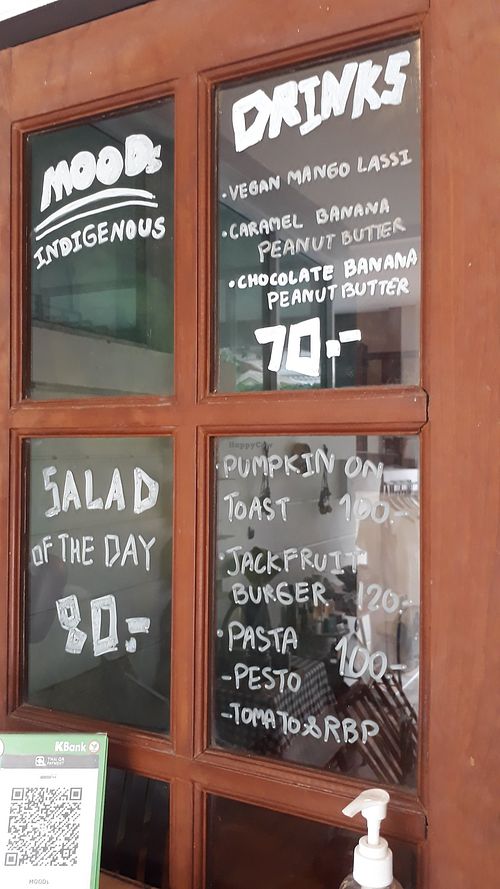 MOODs
INDIGENOUS
DRINKS
• VEGAN MANGO LASSI
• CARAMEL BANANA
PEANUT BUTTER
• CHOCOLATE BANANA
PEANUT BUTTER
70.-
HappyCow
SALAD
OF THE DAY
80.-
• PUMPKIN ON
TOAST 100.-
• JACKFRUIT
BURGER 120.-
• PASTA 100.-
- PESTO
- TOMATO & RBP
KBank
THAI QR
PAYMENT
MOODs